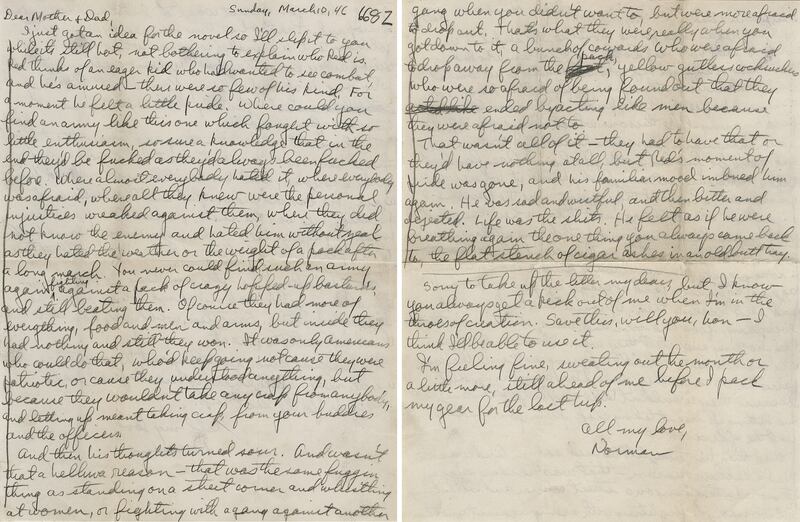 Sunday, March 10, 46 668Z
Dear Mother & Dad,
I just got an idea for the novel so I'll slip it to you
while it's still hot, not bothering to explain who Red is.
Red thinks of an eager kid who had wanted to see combat
and his amused — there were so few of his kind. For
a moment he felt a little pride. Where could you
find an army like this one which fought with so
little enthusiasm, so sure a knowledge that in the
end they'd be fucked as they'd always been fucked
before. Where almost everybody hated it, where everybody
was afraid, where all they knew were the personal
injustices wreaked against them, where they did
not know the enemy and hated him without zeal
as they hated the weather or the weight of a pack after
a long march. You never could find such an army
again, fighting against a pack of crazy hopped-up bastards,
and still beating them. Of course they had more of
everything, food and men and arms, but inside they
had nothing and still they won. It was only Americans
who could do that, who'd keep going not cause they were
patriotic, or cause they understood anything, but
because they wouldn't take any crap from anybody,
and letting up meant taking crap from your buddies
and the officers.
And then his thoughts turned sour. And wasn't
that a helluva reason — that was the same fuggin
thing as standing on a street corner and whistling
at women, or fighting with a gang against another
gang when you didn't want to but were more afraid
to drop out. That's what they were really when you
got down to it, a bunch of cowards who were afraid
to drop away from the pack, yellow gutless cocksuckers
who were so afraid of being found out that they
ended by acting like men because
they were afraid not to.
That wasn't all of it — they had to have that or
they'd have nothing at all, but Red's moment of
pride was gone, and his familiar mood imbued him
again. He was sad and wistful, and then bitter and
dejected. Life was the shits. He felt as if he were
breathing again the one thing you always came back
to, the flat stench of cigar ashes in an old butt tray.
Sorry to take up the letter my dears, but I know
you always get a kick out of me when I'm in the
throes of creation. Save this, will you, hon — I
think I'll be able to use it.
I'm feeling fine, sweating out the month or
a little more, still ahead of me before I pack
my gear for the last trip.
all my love,
Norman